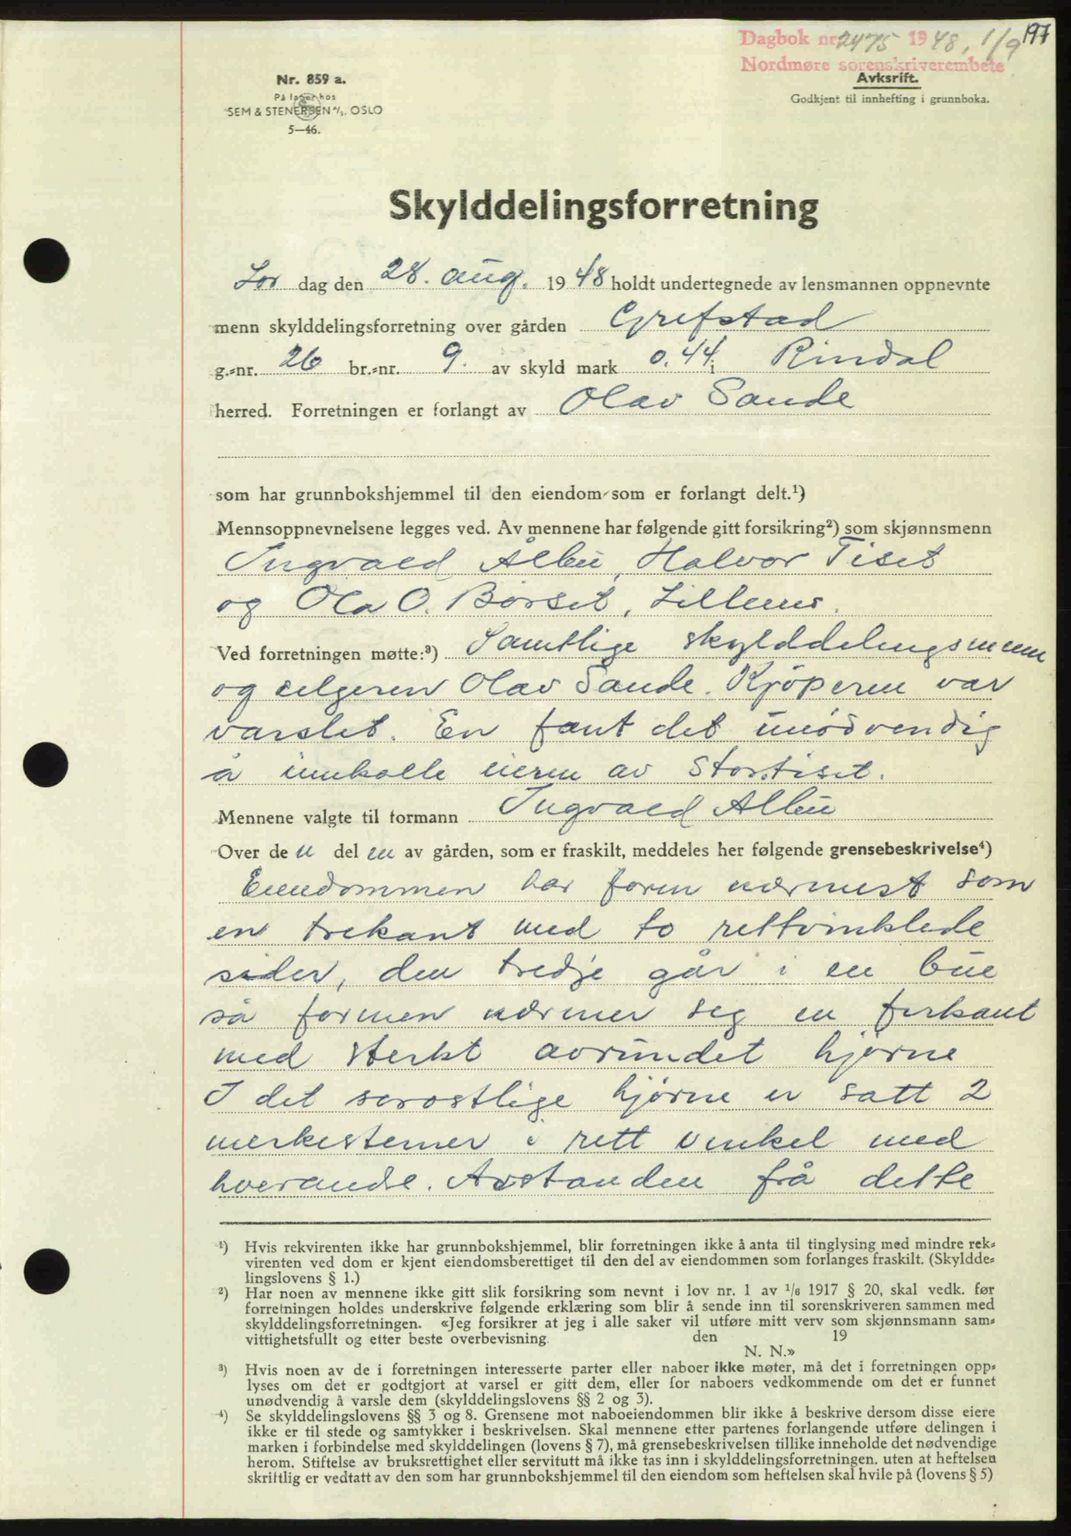 197
Dagbok nr. 2475 1948, 1/9
Nordmøre sorenskriverembete
Nr. 859 a.
På lager hos
SEM & STENERSEN A/S, OSLO
5—46.
Avksrift.
Godkjent til innhefting i grunnboka.
Skylddelingsforretning
Lør dag den 28. aug. 1948 holdt undertegnede av lensmannen oppnevnte
menn skylddelingsforretning over gården Grefstad
g.-nr. 26 br.-nr. 9. av skyld mark 0.44 i Rindal
herred. Forretningen er forlangt av Olav Sande
som har grunnbokshjemmel til den eiendom som er forlangt delt.¹)
Mennsoppnevnelsene legges ved. Av mennene har følgende gitt forsikring²) som skjønnsmenn
Ingvald Albu, Halvor Tiset
og Ola O. Børset, Lillemo.
Ved forretningen møtte:³) Samtlige skylddelingsmenn
og selgeren Olav Sande. Kjøperen var
varslet. En fant det unødvendig
å innkalle eieren av Stortiset.
Mennene valgte til formann Ingvald Albu
Over de n del en av gården, som er fraskilt, meddeles her følgende grensebeskrivelse⁴)
Eiendommen har form nærmest som
en trekant med to rettvinklede
sider, den tredje går i en bue
så formen nærmer seg en firkant
med sterkt avrundet hjørne
I det sørøstlige hjørne er satt 2
merkestener i rett vinkel med
hverandre. Avstanden frå dette
¹) Hvis rekvirenten ikke har grunnbokshjemmel, blir forretningen ikke å anta til tinglysing med mindre rek-
virenten ved dom er kjent eiendomsberettiget til den del av eiendommen som forlanges fraskilt. (Skyldde-
lingslovens § 1.)
²) Har noen av mennene ikke gitt slik forsikring som nevnt i lov nr. 1 av 1/6 1917 § 20, skal vedk. før
forretningen holdes underskrive følgende erklæring som blir å sende inn til sorenskriveren sammen med
skylddelingsforretningen. «Jeg forsikrer at jeg i alle saker vil utføre mitt verv som skjønnsmann sam-
vittighetsfullt og etter beste overbevisning den 19
N. N.»
³) Hvis noen av de i forretningen interesserte parter eller naboer ikke møter, må det i forretningen opp-
lyses om det er godtgjort at varsel er gitt dem, eller for naboers vedkommende om det er funnet
unødvendig å varsle dem (skylddelingslovens §§ 2 og 3).
⁴) Se skylddelingslovens §§ 3 og 8. Grensene mot naboeiendommen blir ikke å beskrive dersom disse eiere
ikke er til stede og samtykker i beskrivelsen. Skal mennene etter partenes forlangende utføre delingen i
marken i forbindelse med skylddelingen (lovens § 7), må grensebeskrivelsen tillike inneholde det nødvendige
herom. Stiftelse av bruksrettighet eller servitutt må ikke tas inn i skylddelingsforretningen, uten at heftelsen
skriftlig er vedtatt av den som har grunnbokshjemmel til den eiendom som heftelsen skal hvile på (lovens § 5)